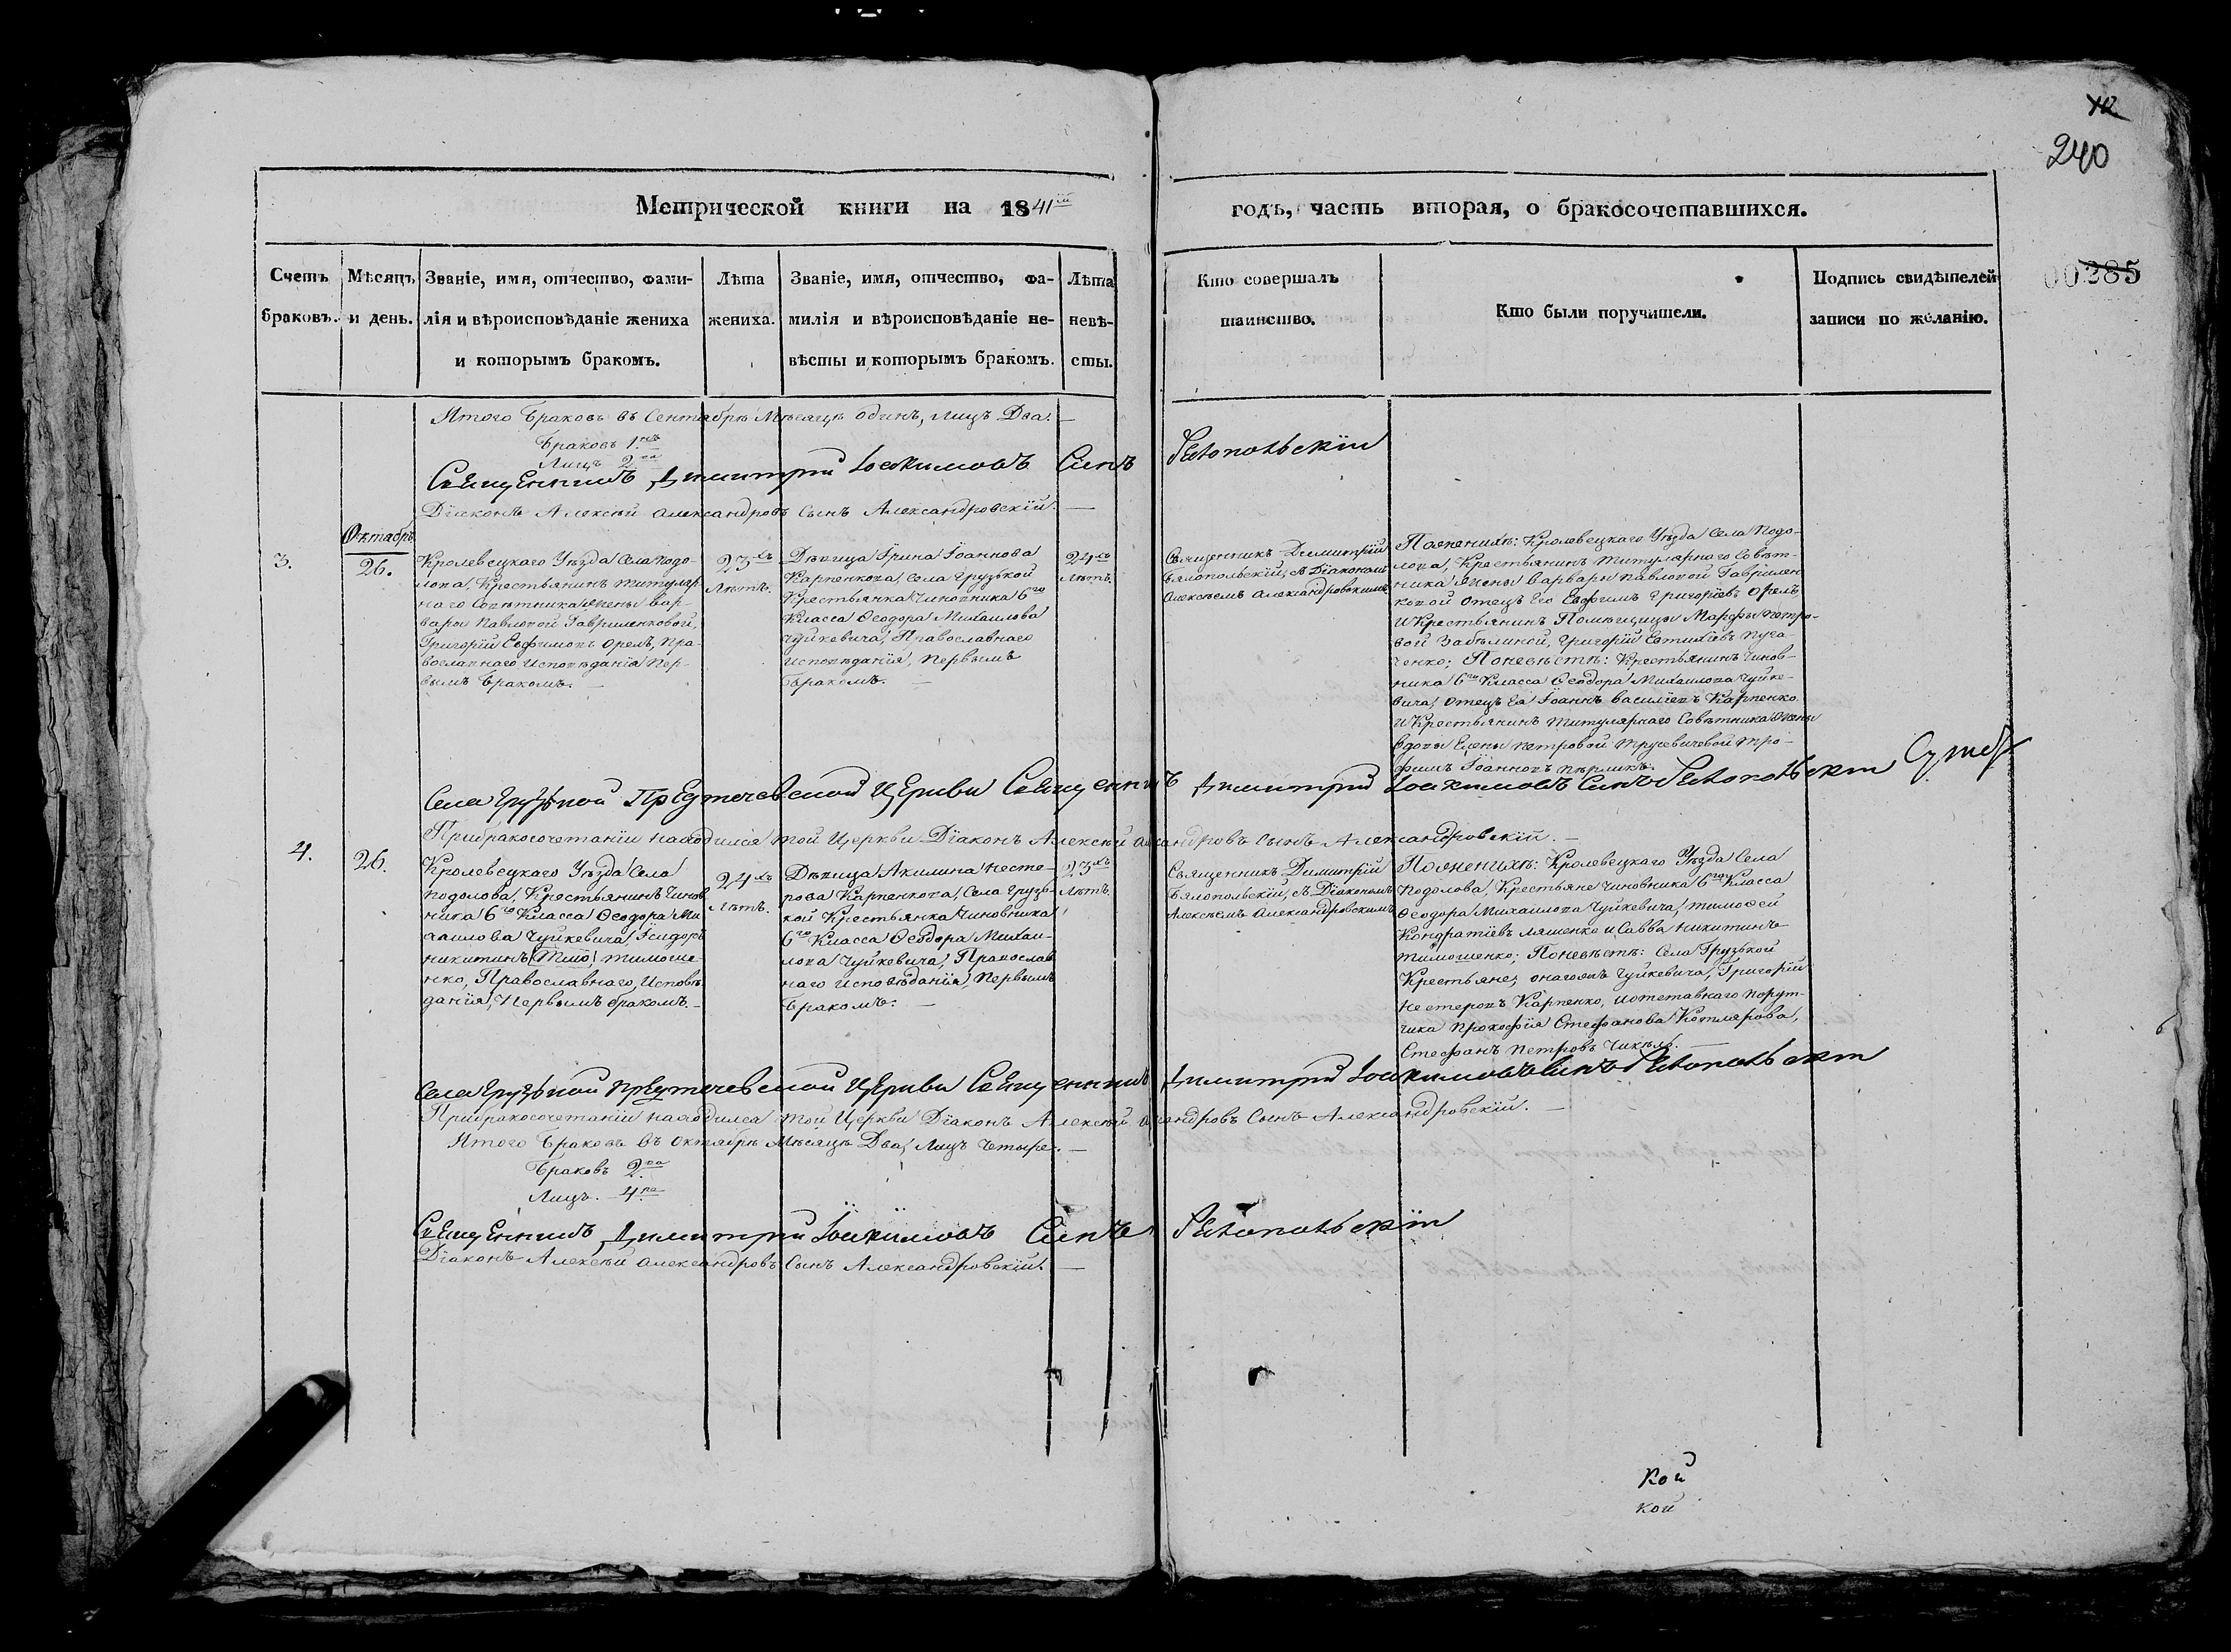 240
Метрической книги на 1841ій
годъ, часть вторая, о бракосочетавшихся.
00285
Счетъ браковъ.
Мѣсяцъ и день.
Званіе, имя, отчество, фами-
лія и вѣроисповѣданіе жениха
и которымъ бракомъ.
Лѣта
жениха.
Званіе, имя, отчество, фа-
милія и вѣроисповѣданіе не-
вѣсты и которымъ бракомъ.
Лѣта
невѣ-
сты.
Кто совершалъ
таинство.
Кто были поручители.
Подпись свидѣтелей
записи по желанію.
Итого Браковъ въ Сентябрѣ Мѣсяцѣ одинъ, лицъ Два.
Браковъ 1.
Лицъ 2.
Священникъ Димитрій Іоакимовъ Синъ Белопольскій
Діаконъ Алексѣй Александровъ Сынъ Александровскій.
Октябрь
3.
26.
Кролевецкаго Уѣзда Села Подо-
лова, Крестьянинъ титуляр
наго Совѣтника жены Вар-
вары Павловой Гавриленковой,
Григорій Евфимовъ Орелъ, Пра-
вославнаго Исповѣданія Пер-
вымъ Бракомъ.
23хъ
Лѣтъ.
Дѣвица Ірина Іоаннова
Карпенкова, Села Грузькой
Крестьянка Чиновника 6го
Класса Ѳеодора Михаилова
Чуйкевича, Православнаго
исповѣданія, Первымъ
Бракомъ.
24хъ
Лѣтъ.
Священникъ Димитрій
Бялопольскій, съ Діакономъ
Алексѣемъ Александровскимъ
По женихѣ: Кролевецкаго Уѣзда Села Подо-
лова, Крестьянинъ Титулярнаго Совѣт-
ника жены Варвары Павловой Гаврилен
ковой отецъ Его Евфимъ Григоріевъ Орелъ
И Крестьянинъ Помѣщицы Марфы Петро-
вой Забѣлиной, Григорій Евтихіевъ Пуга-
ченко; По невѣстѣ: Крестьянинъ Чинов-
ника 6го Класса Ѳеодора Михаилова Чуйке-
вича, отецъ Ея Іоаннъ Василіевъ Карпенко
И Крестьянинъ Титулярнаго Совѣтника жены
Вдовы Елены Петровой Трусевичевой Тро-
фимъ Іоанновъ
Села Грузькой Предтечевской Церкви Священникъ Димитрій Іоакимовъ Синъ Белопольскій
При бракосочетаніи находился той Церкви Діаконъ Алексѣй Александровъ Сынъ Александровскій.
4.
26.
Кролевецкаго Уѣзда Села
Подолова, Крестьянинъ Чинов
ника 6го Класса Ѳеодора Ми
хаилова Чуйкевича, Ісидоръ
Никитинъ (Тимо) Тимоше
нко, Православнаго, Исповѣ
данія, Первымъ бракомъ.
24хъ
Лѣтъ.
Дѣвица Акилина Несте-
рова Карпенкова, Села Грузь-
кой Крестьянка Чиновника
6го Класса Ѳеодора Михаи-
лова Чуйкевича, Православ
наго исповѣданія, Первымъ
Бракомъ.
23хъ
Лѣтъ.
Священникъ Димитрій
Бялопольскій, съ Діакономъ
Алексѣемъ Александровскимъ
По женихѣ: Кролевецкаго Уѣзда Села
Подолова, Крестьяне Чиновника 6го Класса
Ѳеодора Михаилова Чуйкевича, Тимоѳей
Кондратіевъ Ляшенко и Савва Никитинъ
Тимошенко; По невѣстѣ: Села Грузькой
Крестьяне, онагожъ Чуйкевича, Григорій
Нестеровъ Карпенко, и отставнаго Порут-
чика Прокофія Стефанова Котлярова,
Стефанъ Петровъ
Села Грузькой Предтечевской Церкви Священникъ Димитрій Іоакимовъ Синъ Белопольскій
При бракосочетаніи находился той Церкви Діаконъ Алексѣй Александровъ Сынъ Александровскій.
Итого Браковъ въ Октябрѣ Мѣсяцѣ Два, Лицъ Четыре.
Браковъ 2ва
Лицъ. 4ре
Священникъ Димитрій Іоакимовъ Синъ Белопольскій
Діаконъ Алексѣй Александровъ Сынъ Александровскій.
кой
кой